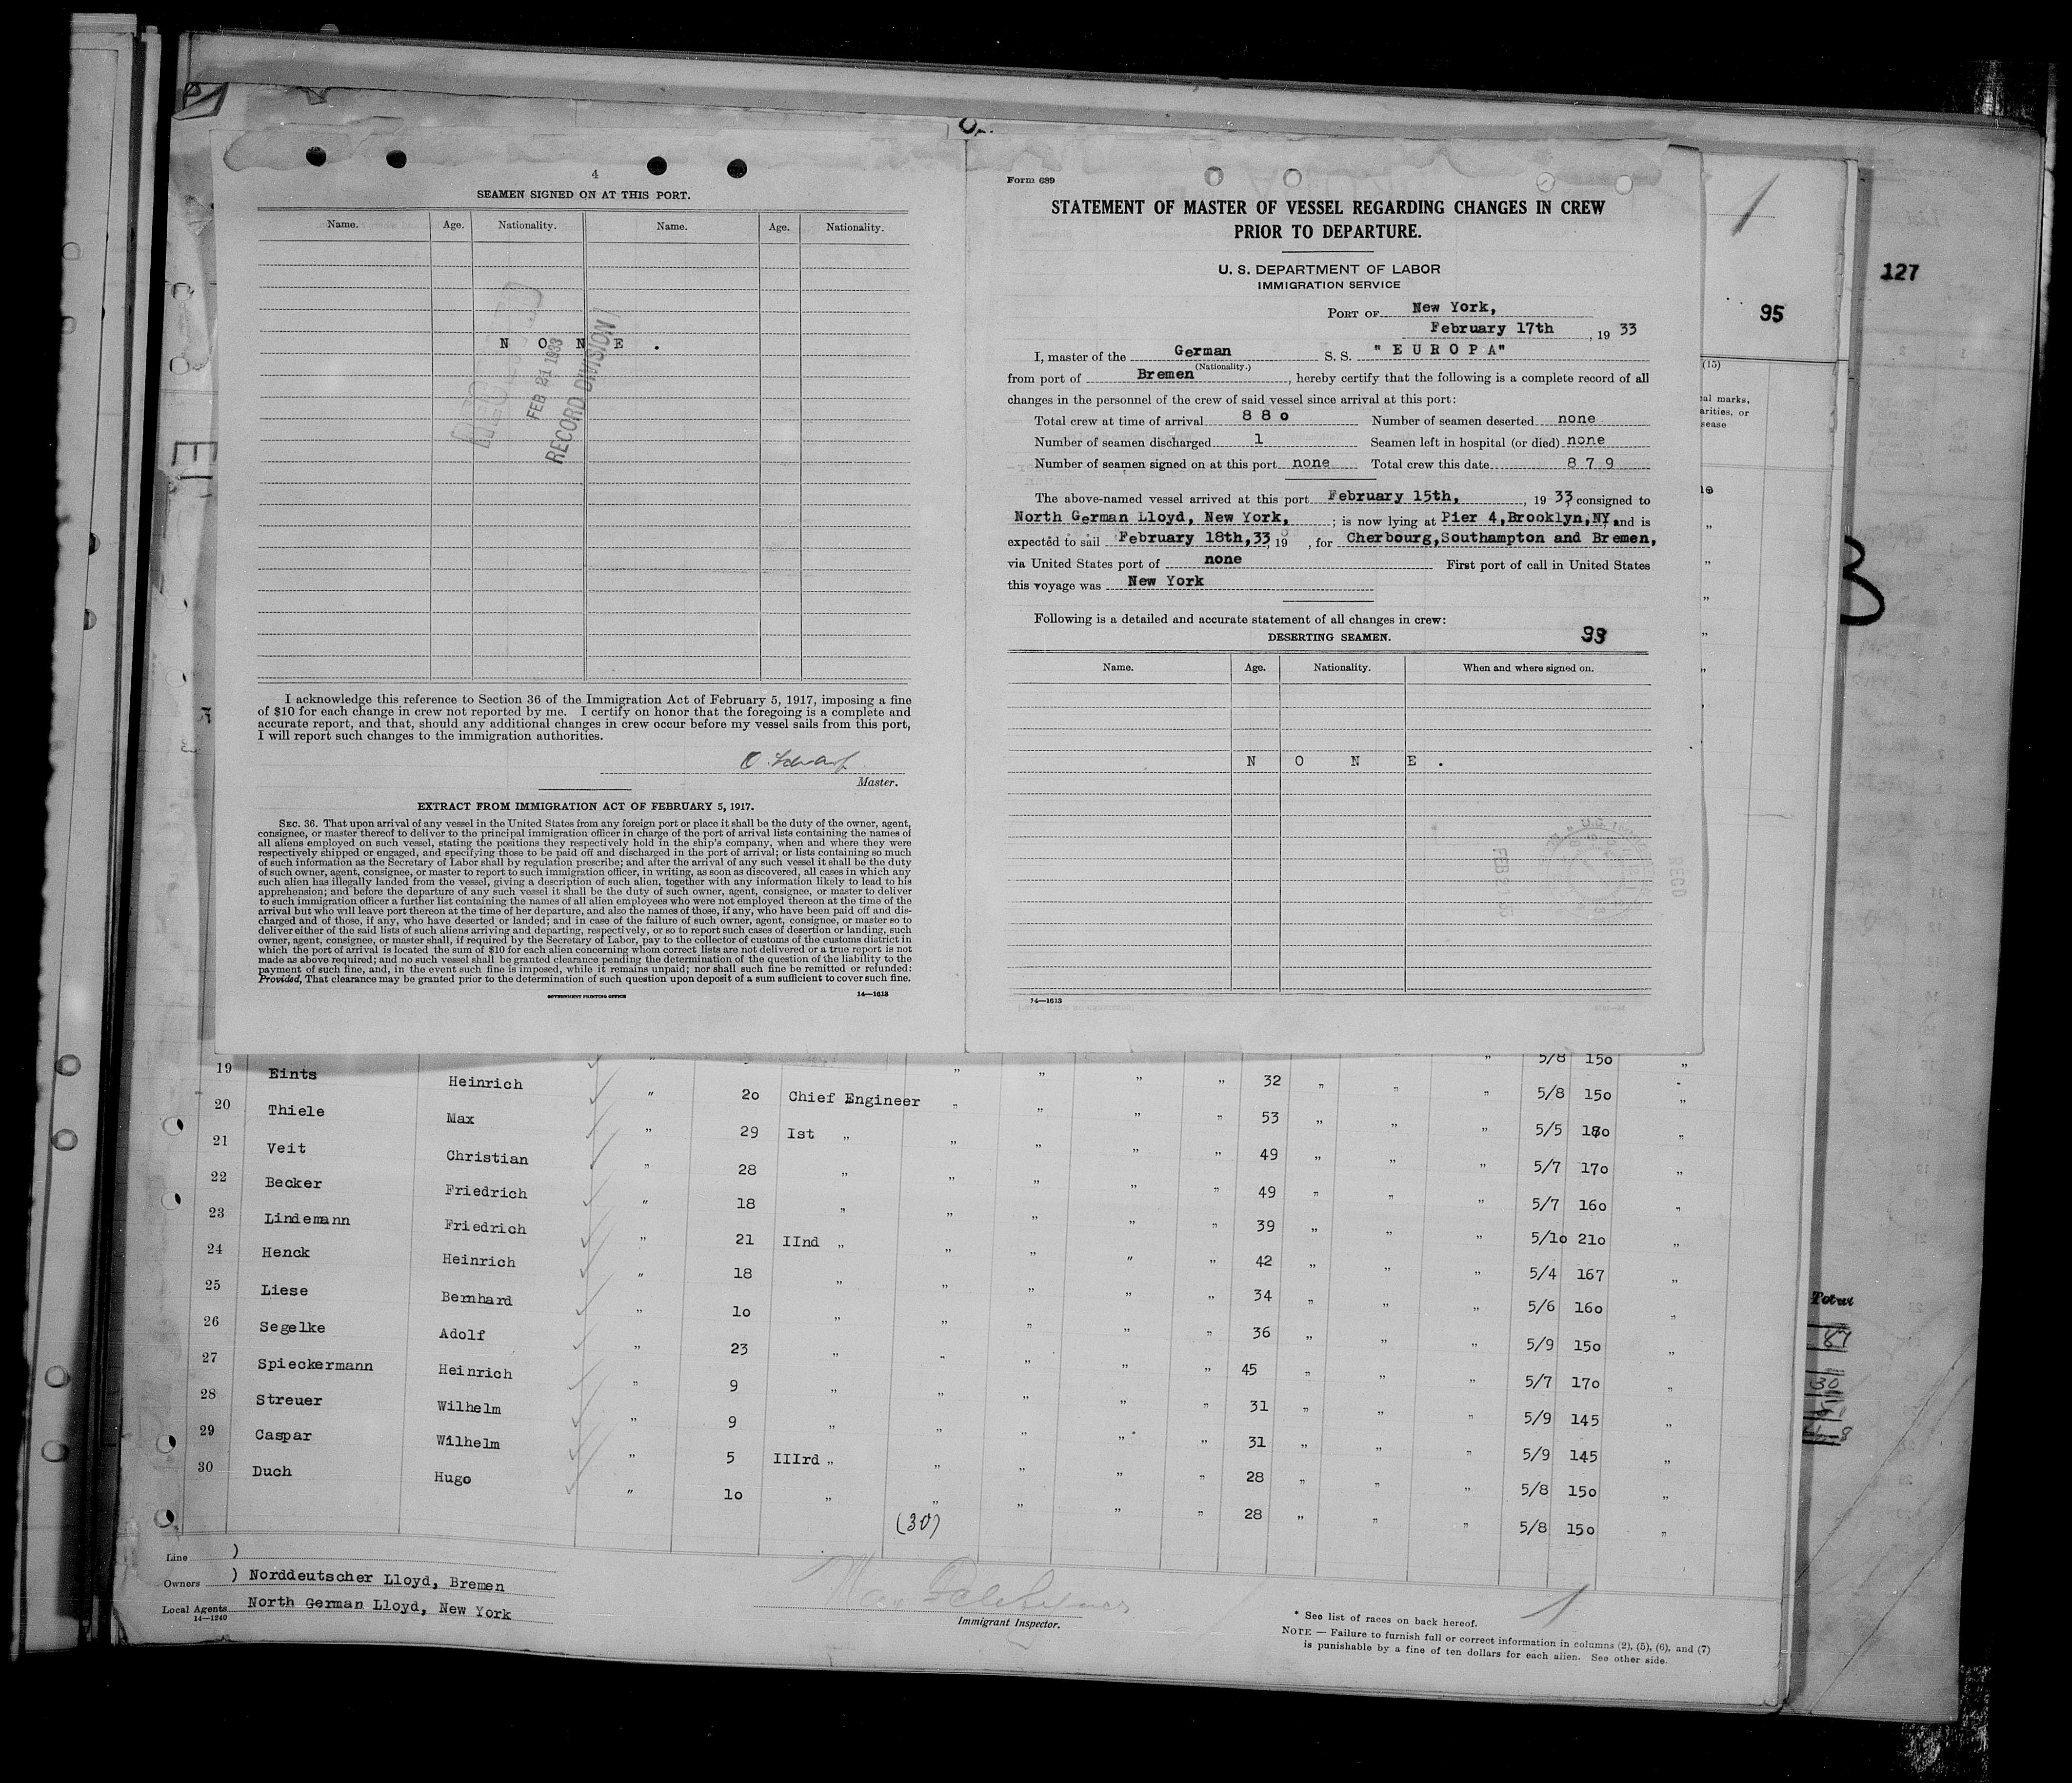 4
SEAMEN SIGNED ON AT THIS PORT.
Name. Age. Nationality. Name. Age. Nationality.
N O N E .
FEB 21 1933
RECORD DIVISION
I acknowledge this reference to Section 36 of the Immigration Act of February 5, 1917, imposing a fine
of $10 for each change in crew not reported by me. I certify on honor that the foregoing is a complete and
accurate report, and that, should any additional changes in crew occur before my vessel sails from this port,
I will report such changes to the immigration authorities.
Master.
EXTRACT FROM IMMIGRATION ACT OF FEBRUARY 5, 1917.
SEC. 36. That upon arrival of any vessel in the United States from any foreign port or place it shall be the duty of the owner, agent,
consignee, or master thereof to deliver to the principal immigration officer in charge of the port of arrival lists containing the names of
all aliens employed on such vessel, stating the positions they respectively hold in the ship's company, when and where they were
respectively shipped or engaged, and specifying those to be paid off and discharged in the port of arrival; or lists containing so much
of such information as the Secretary of Labor shall by regulation prescribe; and after the arrival of any such vessel it shall be the duty
of such owner, agent, consignee, or master to report to such immigration officer, in writing, as soon as discovered, all cases in which any
such alien has illegally landed from the vessel, giving a description of such alien, together with any information likely to lead to his
apprehension; and before the departure of any such vessel it shall be the duty of such owner, agent, consignee, or master to deliver
to such immigration officer a further list containing the names of all alien employees who were not employed thereon at the time of the
arrival but who will leave port thereon at the time of her departure, and also the names of those, if any, who have been paid off and dis-
charged and of those, if any, who have deserted or landed; and in case of the failure of such owner, agent, consignee, or master so to
deliver either of the said lists of such aliens arriving and departing, respectively, or so to report such cases of desertion or landing, such
owner, agent, consignee, or master shall, if required by the Secretary of Labor, pay to the collector of customs of the customs district in
which the port of arrival is located the sum of $10 for each alien concerning whom correct lists are not delivered or a true report is not
made as above required; and no such vessel shall be granted clearance pending the determination of the question of the liability to the
payment of such fine, and, in the event such fine is imposed, while it remains unpaid; nor shall such fine be remitted or refunded:
Provided, That clearance may be granted prior to the determination of such question upon deposit of a sum sufficient to cover such fine.
GOVERNMENT PRINTING OFFICE 14—1613
Form 689
STATEMENT OF MASTER OF VESSEL REGARDING CHANGES IN CREW
PRIOR TO DEPARTURE.
U. S. DEPARTMENT OF LABOR
IMMIGRATION SERVICE
PORT OF New York,
February 17th, 19 33
I, master of the German S. S. "E U R O P A"
(Nationality.)
from port of Bremen, hereby certify that the following is a complete record of all
changes in the personnel of the crew of said vessel since arrival at this port:
Total crew at time of arrival 8 8 o Number of seamen deserted none
Number of seamen discharged 1 Seamen left in hospital (or died) none
Number of seamen signed on at this port none Total crew this date 8 7 9
The above-named vessel arrived at this port February 15th, , 19 33 consigned to
North German Lloyd, New York, ; is now lying at Pier 4,Brooklyn,NY and is
expected to sail February 18th,33 19 , for Cherbourg,Southampton and Bremen,
via United States port of none First port of call in United States
this voyage was New York
Following is a detailed and accurate statement of all changes in crew:
DESERTING SEAMEN. 93
Name. Age. Nationality. When and where signed on.
N O N E .
14—1613
1
127
95
(15)
5/8 150 "
19 Eints Heinrich " 2o Chief Engineer " " " " 32 " " " 5/8 15o "
20 Thiele Max " 29 Ist " " " " " 53 " " " 5/5 180 "
21 Veit Christian " 28 " " " " " 49 " " " 5/7 17o "
22 Becker Friedrich " 18 " " " " " 49 " " " 5/7 16o "
23 Lindemann Friedrich " 21 IInd " " " " " 39 " " " 5/1o 21o "
24 Henck Heinrich " 18 " " " " " 42 " " " 5/4 167 "
25 Liese Bernhard " 1o " " " " " 34 " " " 5/6 16o "
26 Segelke Adolf " 23 " " " " " 36 " " " 5/9 15o "
27 Spieckermann Heinrich " 9 " " " " " 45 " " " 5/7 17o "
28 Streuer Wilhelm " 9 " " " " " 31 " " " 5/9 145 "
29 Caspar Wilhelm " 5 IIIrd " " " " " 31 " " " 5/9 145 "
30 Duch Hugo " 1o " " " " " 28 " " " 5/8 15o "
28 " " " 5/8 15o "
(30)
Total
Line )
Owners ) Norddeutscher Lloyd, Bremen
Local Agents North German Lloyd, New York
14—1240
Immigrant Inspector.
* See list of races on back hereof.
NOTE — Failure to furnish full or correct information in columns (2), (5), (6), and (7)
is punishable by a fine of ten dollars for each alien. See other side.